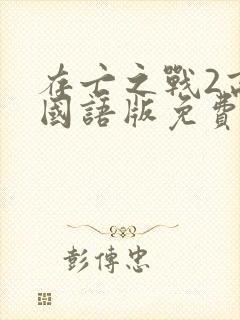 存亡之戰2高
國語版免費
彭傳忠